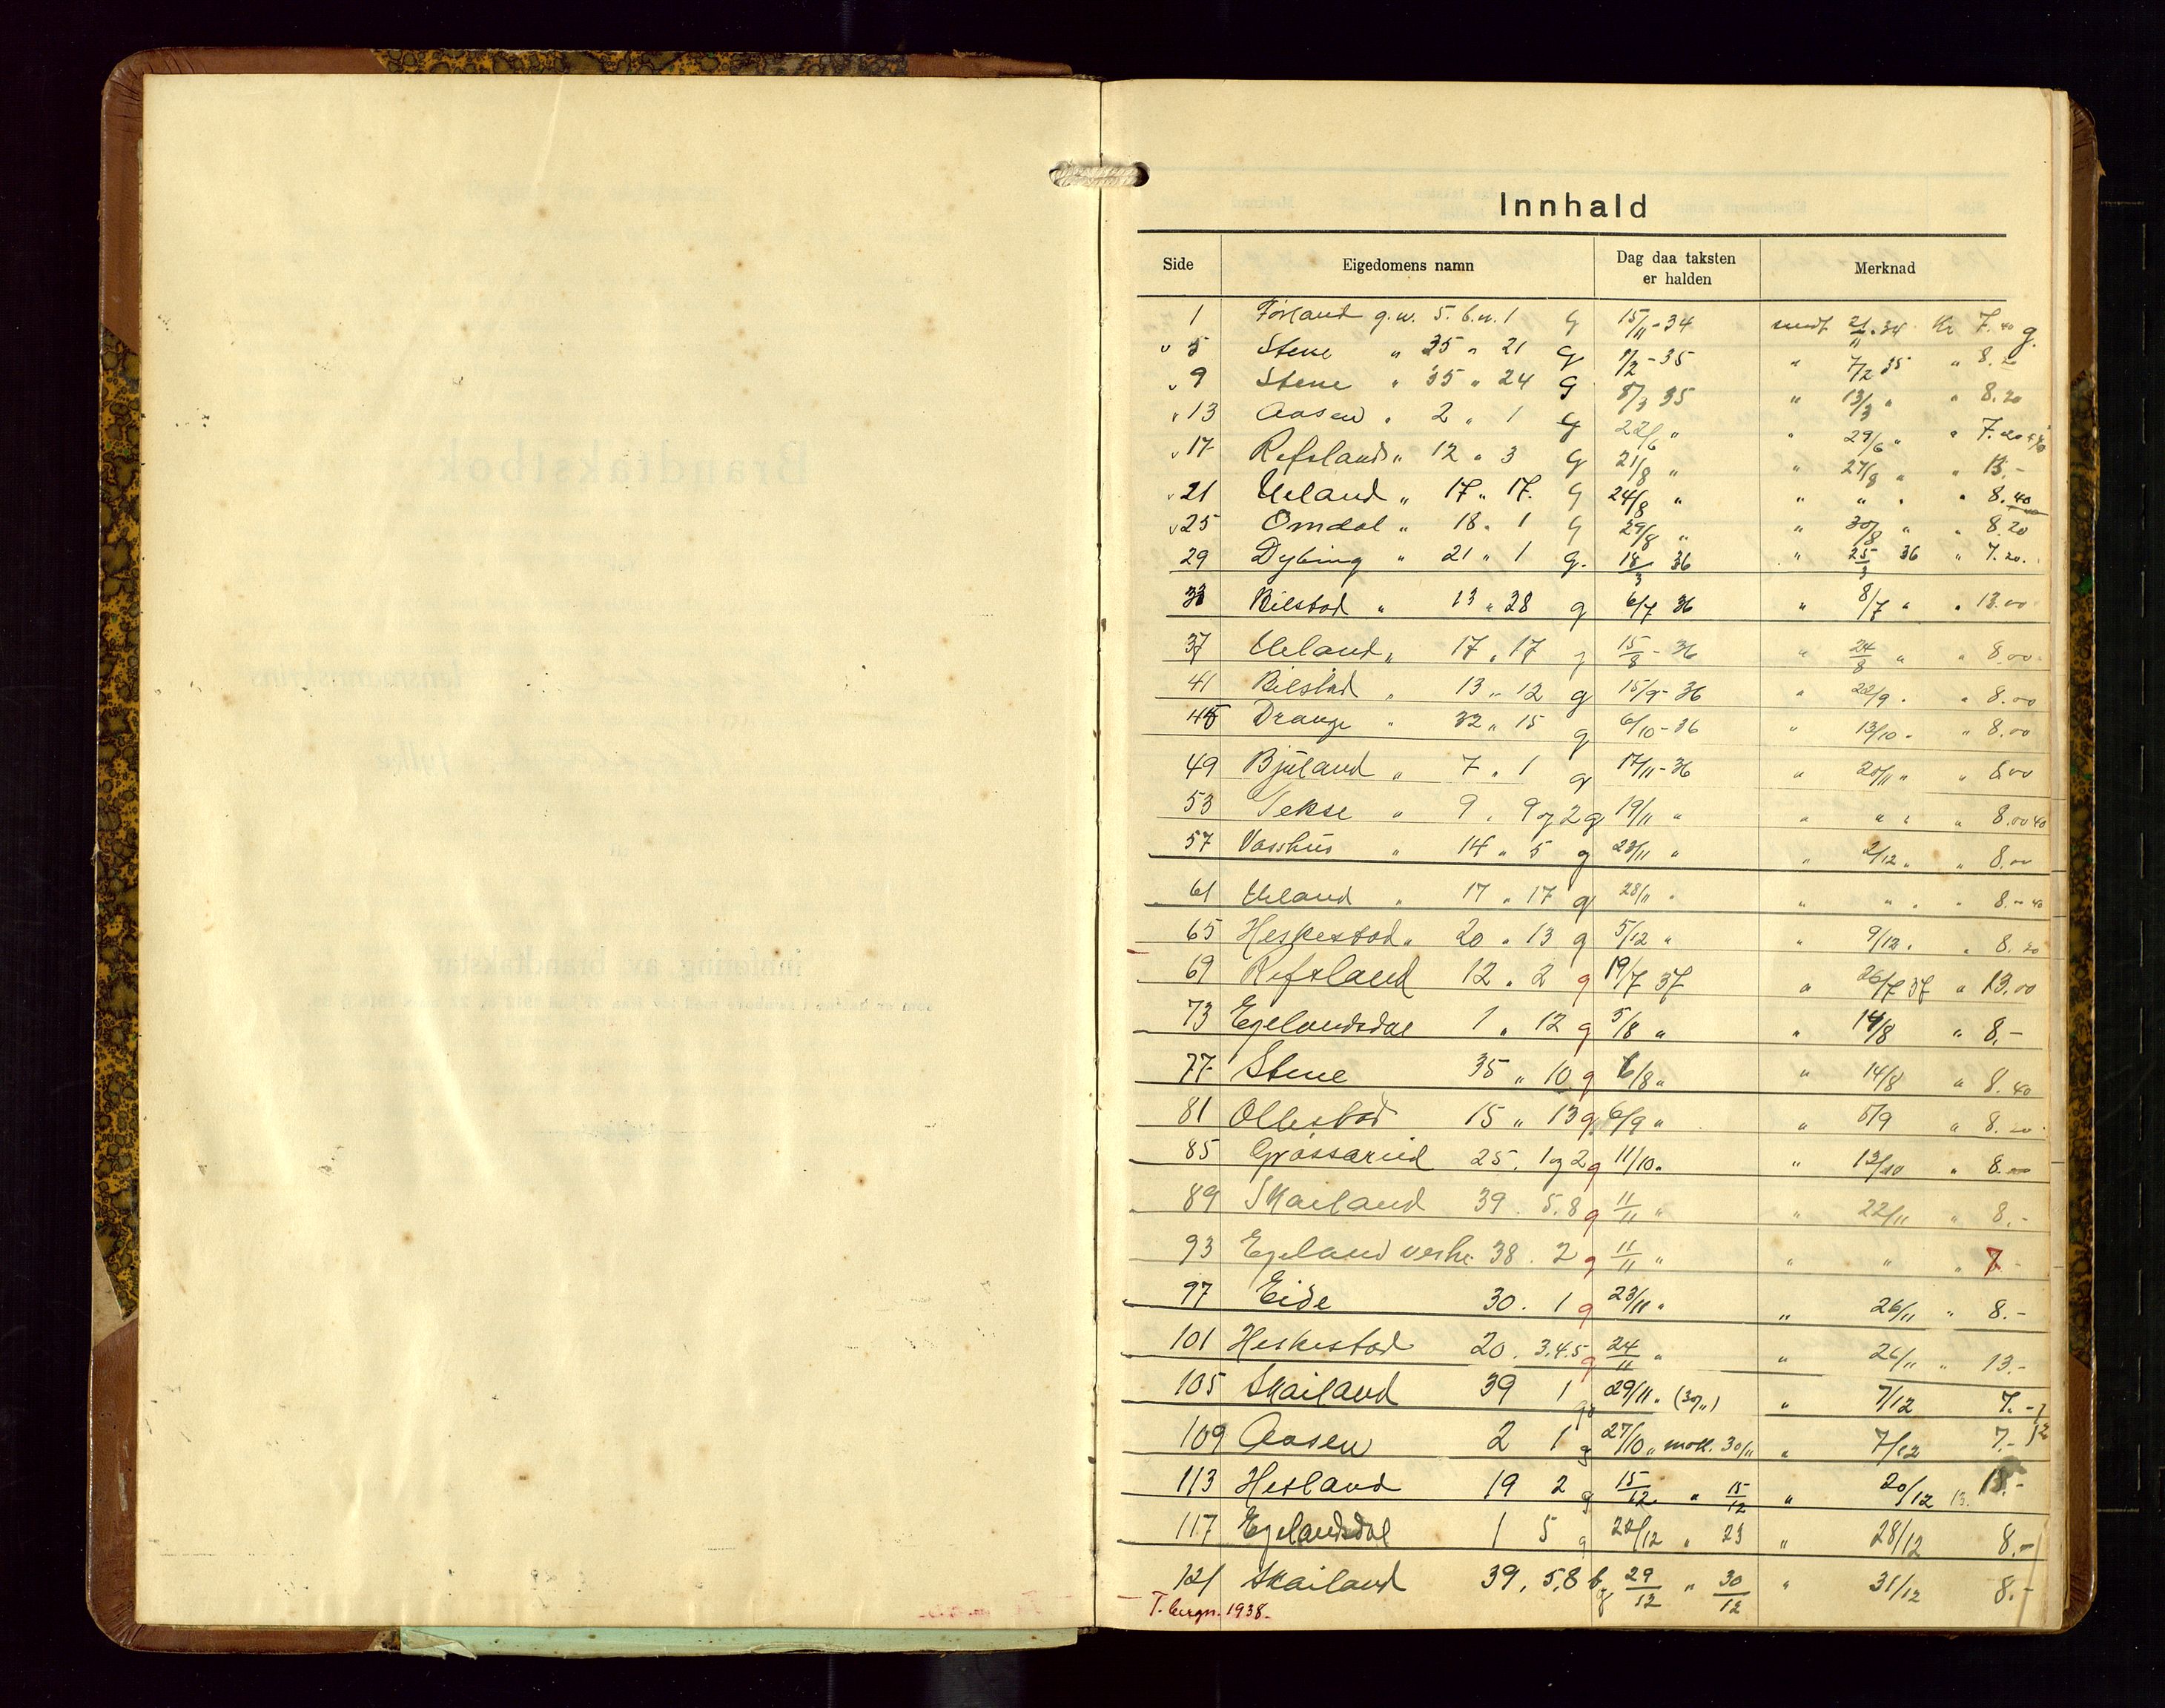 Innhald
Side Eigedomens namn Dag daa taksten er halden Merknad
1 Førland g.n. 5. b.n. 1 g 15/11-34 sendt 21/11 34 Kr 7.40 g.
5 Stene " 35 " 21 g 1/2-35 " 7/2 35 " 8.20
9 Stene " 35 " 24 g 8/3 35 " 13/3 " " 8.20
13 Aasen " 2 " 1 g 22/6 " " 29/6 " " 7.20
17 Refsland " 12 " 3 g 21/8 " " 27/8 " " 13.-
21 Ueland " 17 " 17. g 24/8 " " " " " 8.40
25 Omdal " 18 " 1 g 29/8 " " 30/8 " " 8.20
29 Dybing " 21 " 1 g. 18/3 36 " 25/3 36 " 7.20.
33 Bilstad " 13 " 28 g 6/7 36 " 8/7 " " 13.00
37 Ueland " 17 " 17 g 15/8 - 36 " 24/8 " " 8.00
41 Bilstad " 13 " 12 g 15/9 - 36 " 22/9 " " 8.00
45 Drange " 32 " 15 g 6/10-36 " 13/10 " " 8.00
49 Bjuland " 7 " 1 g 17/11-36 " 20/11 " " 8.00
53 Tekse " 9 " 9 og 2 g 19/11 " " " " " 8.00 40
57 Vasshus " 14 " 5 g 28/11 " " 2/12 " " 8.00
61 Ueland " 17 " 17 g 28/11 " " " " " 8.- 40
65 Heskestad " 20 " 13 g 5/12 " " 9/12 " " 8.20
69 Refsland 12 " 2 g 19/7 37 " 26/7 37 " 13.00
73 Egelandsdal 1 " 12 g 5/8 " " 14/8 " 8.-
77 Stene 35 " 10 g 6/8 " " 14/8 " 8.40
81 Ollestad 15 " 13 g 6/9 " " 8/9 " 8.
85 Grøssereid 25. 1 og 2 g 11/10 " " 13/10 " 8.
89 Skailand 39. 5.8 g 11/11 " " 22/11 " 8.-
93 Egeland vestre 38. 2 g 11/11 " " " " 7 -
97 Eide 30. 1 g 23/11 " " 26/11 " 8.-
101 Heskestad 20. 3.4.5 g 24/11 " " 26/11 " 13.-
105 Skailand 39 1 g 29/11 " (30/11) " 7/12 7.-
109 Aasen 2 1 g 27/10 " mott. 30/11 " 7/12 7.-
113 Hesland 19 2 g 15/12 " 15/12 " 20/12 13. 13.-
117 Egelandsdal 1 5 g 22/12 " 23 " 28/12 8.-
121 Skailand 39. 5,8 b g 29/12 " 30/12 " 31/12 8.-
1938.